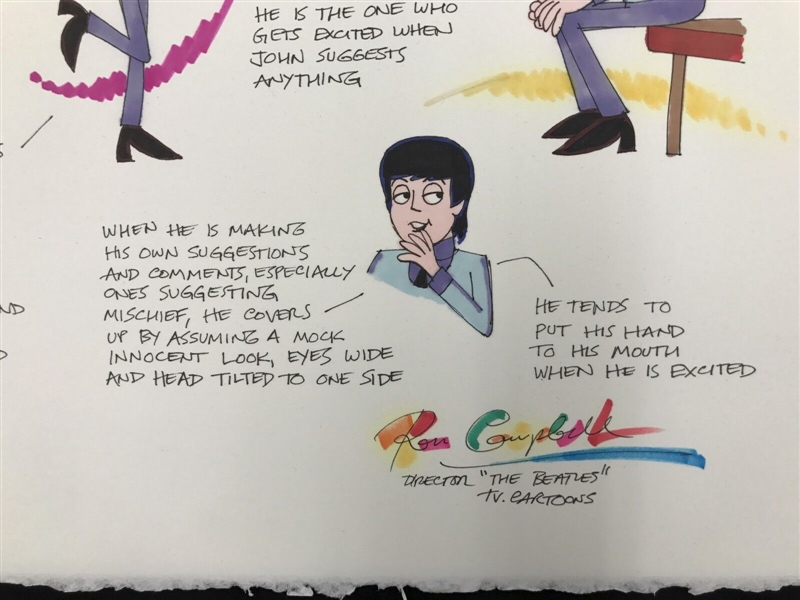 HE IS THE ONE WHO
GETS EXCITED WHEN
JOHN SUGGESTS
ANYTHING
WHEN HE IS MAKING
HIS OWN SUGGESTIONS
AND COMMENTS, ESPECIALLY
ONES SUGGESTING
MISCHIEF, HE COVERS
UP BY ASSUMING A MOCK
INNOCENT LOOK, EYES WIDE
AND HEAD TILTED TO ONE SIDE
HE TENDS TO
PUT HIS HAND
TO HIS MOUTH
WHEN HE IS EXCITED
Ron Campbell
DIRECTOR "THE BEATLES"
TV. CARTOONS